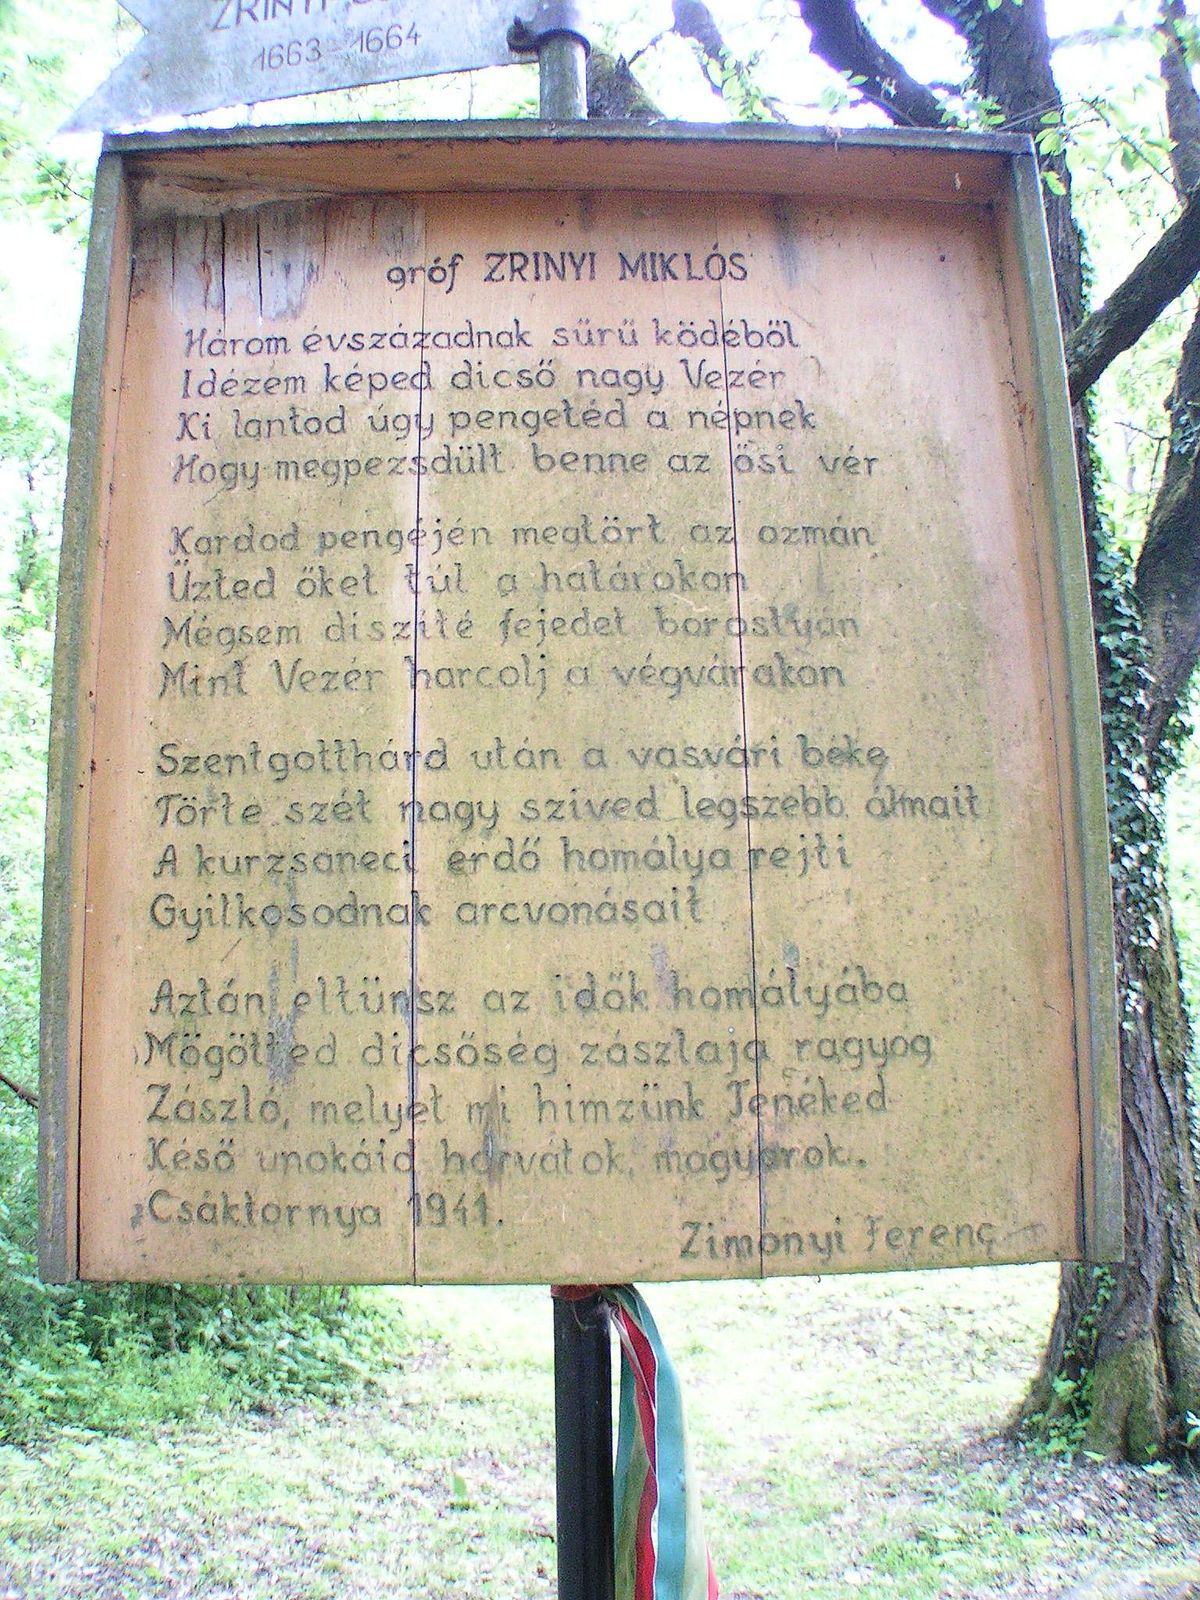 ZRINYI
1663-1664
gróf ZRINYI MIKLÓS
Három évszázadnak sűrű ködéből
Idézem képed dicső nagy Vezér
Ki lantod úgy pengetéd a népnek
Hogy megpezsdült benne az ősi vér
Kardod pengéjén megtört az ozmán
Űzted őket túl a határokon
Mégsem diszíté fejedet borostyán
Mint Vezér harcolj a végvárakon
Szentgotthárd után a vasvári béke
Törte szét nagy szived legszebb álmait
A kurzsaneci erdő homálya rejti
Gyilkosodnak arcvonásait
Aztán eltünsz az idők homályába
Mögötted dicsőség zászlaja ragyog
Zászló, melyet mi himzünk Tenéked
Késő unokáid horvátok, magyarok.
Csáktornya 1941.
Zimonyi Ferenc